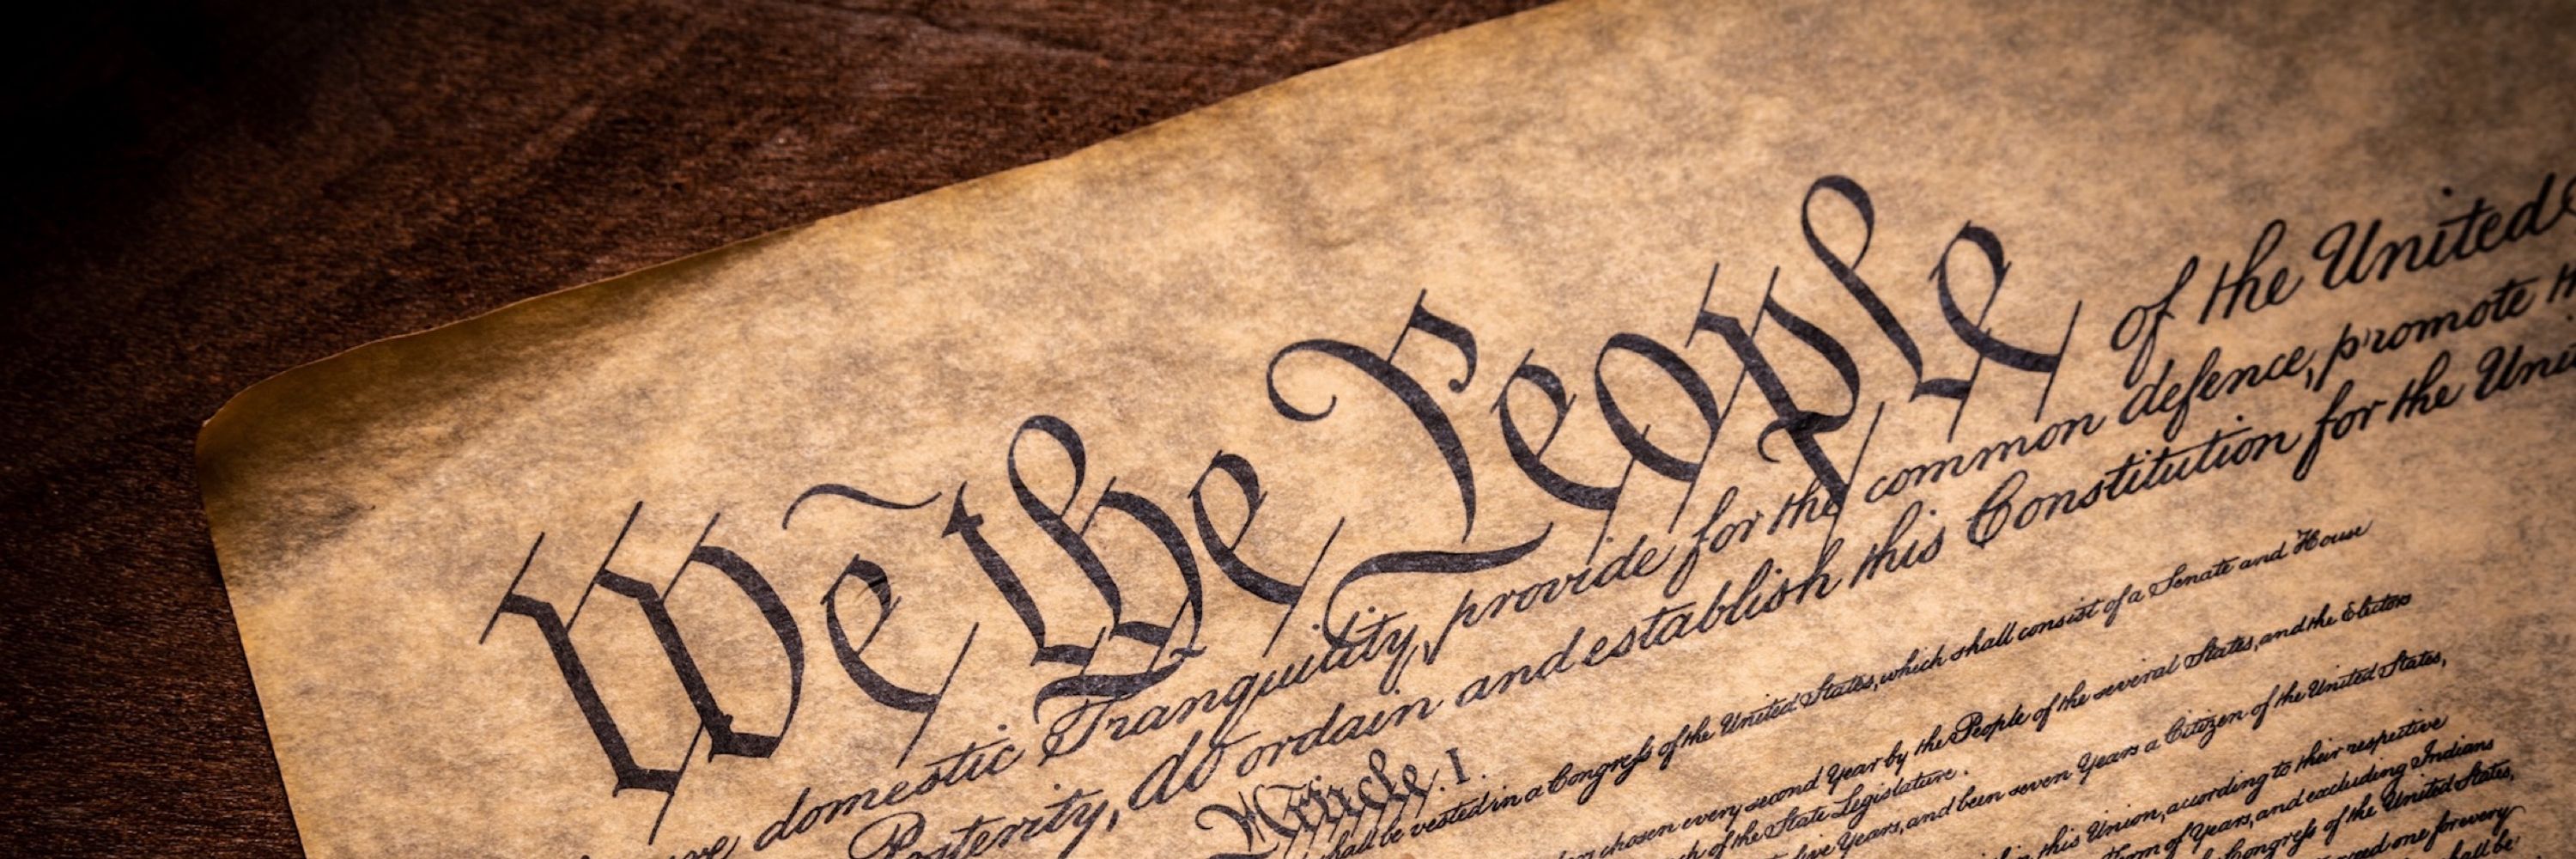 We the People of the United
domestic Tranquility, provide for the common defence, promote
Posterity, do ordain and establish this Constitution for the
Article. I.
shall be vested in a Congress of the United States, which shall consist of a Senate and House
chosen every second Year by the People of the several States, and the Electors
of the State Legislature.
Years, and been seven Years a Citizen of the United States,
this Union, according to their respective
Term of Years, and excluding Indians
Congress of the United States,
one for every
shall be